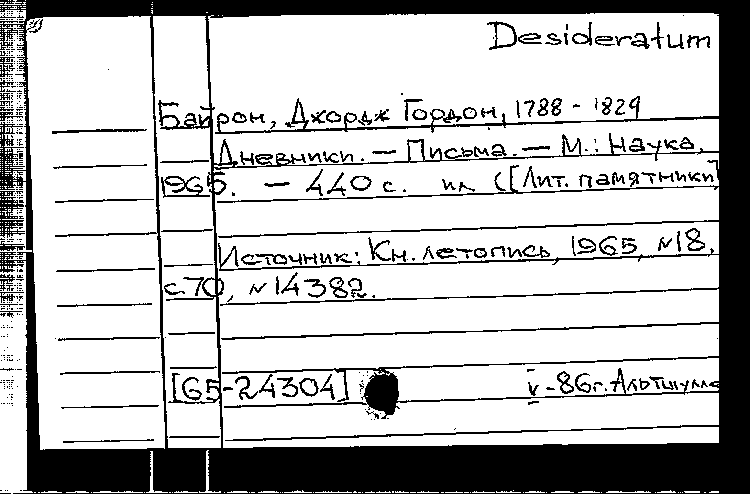 Desideratum
Байрон, Джордж Гордон, 1788 - 1829
Дневники. — Письма. — М.: Наука,
1965. — 440 с. ил ([Лит. памятники]
Источник: Кн. летопись, 1965, N18,
с.70, N14382.
[65-24304] V-86г. Альтшулле